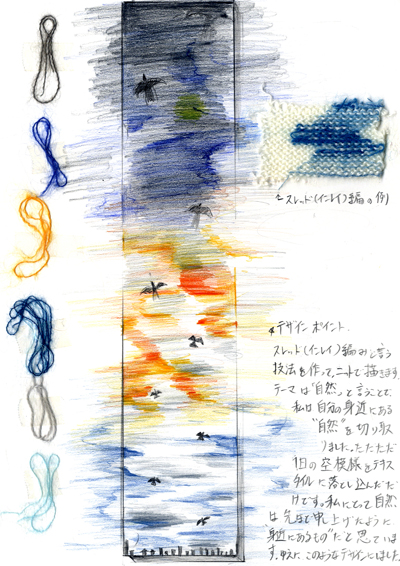 ↑スレッド(インレイ)編の例
デザイン ポイント.
スレッド(インレイ)編みと言う
技法を作って、ニットで描きます。
テーマは"自然"。と言うことで、
私は自分の身近にある
"自然"を切り取
りました。ただただ
1日の空模様をテキス
タイルに落とし込んだだ
けです。私にとって自然
は先ほど申し上げたように
身近にあるもの"だと思ていま
す。故に このようなデザインにしました。